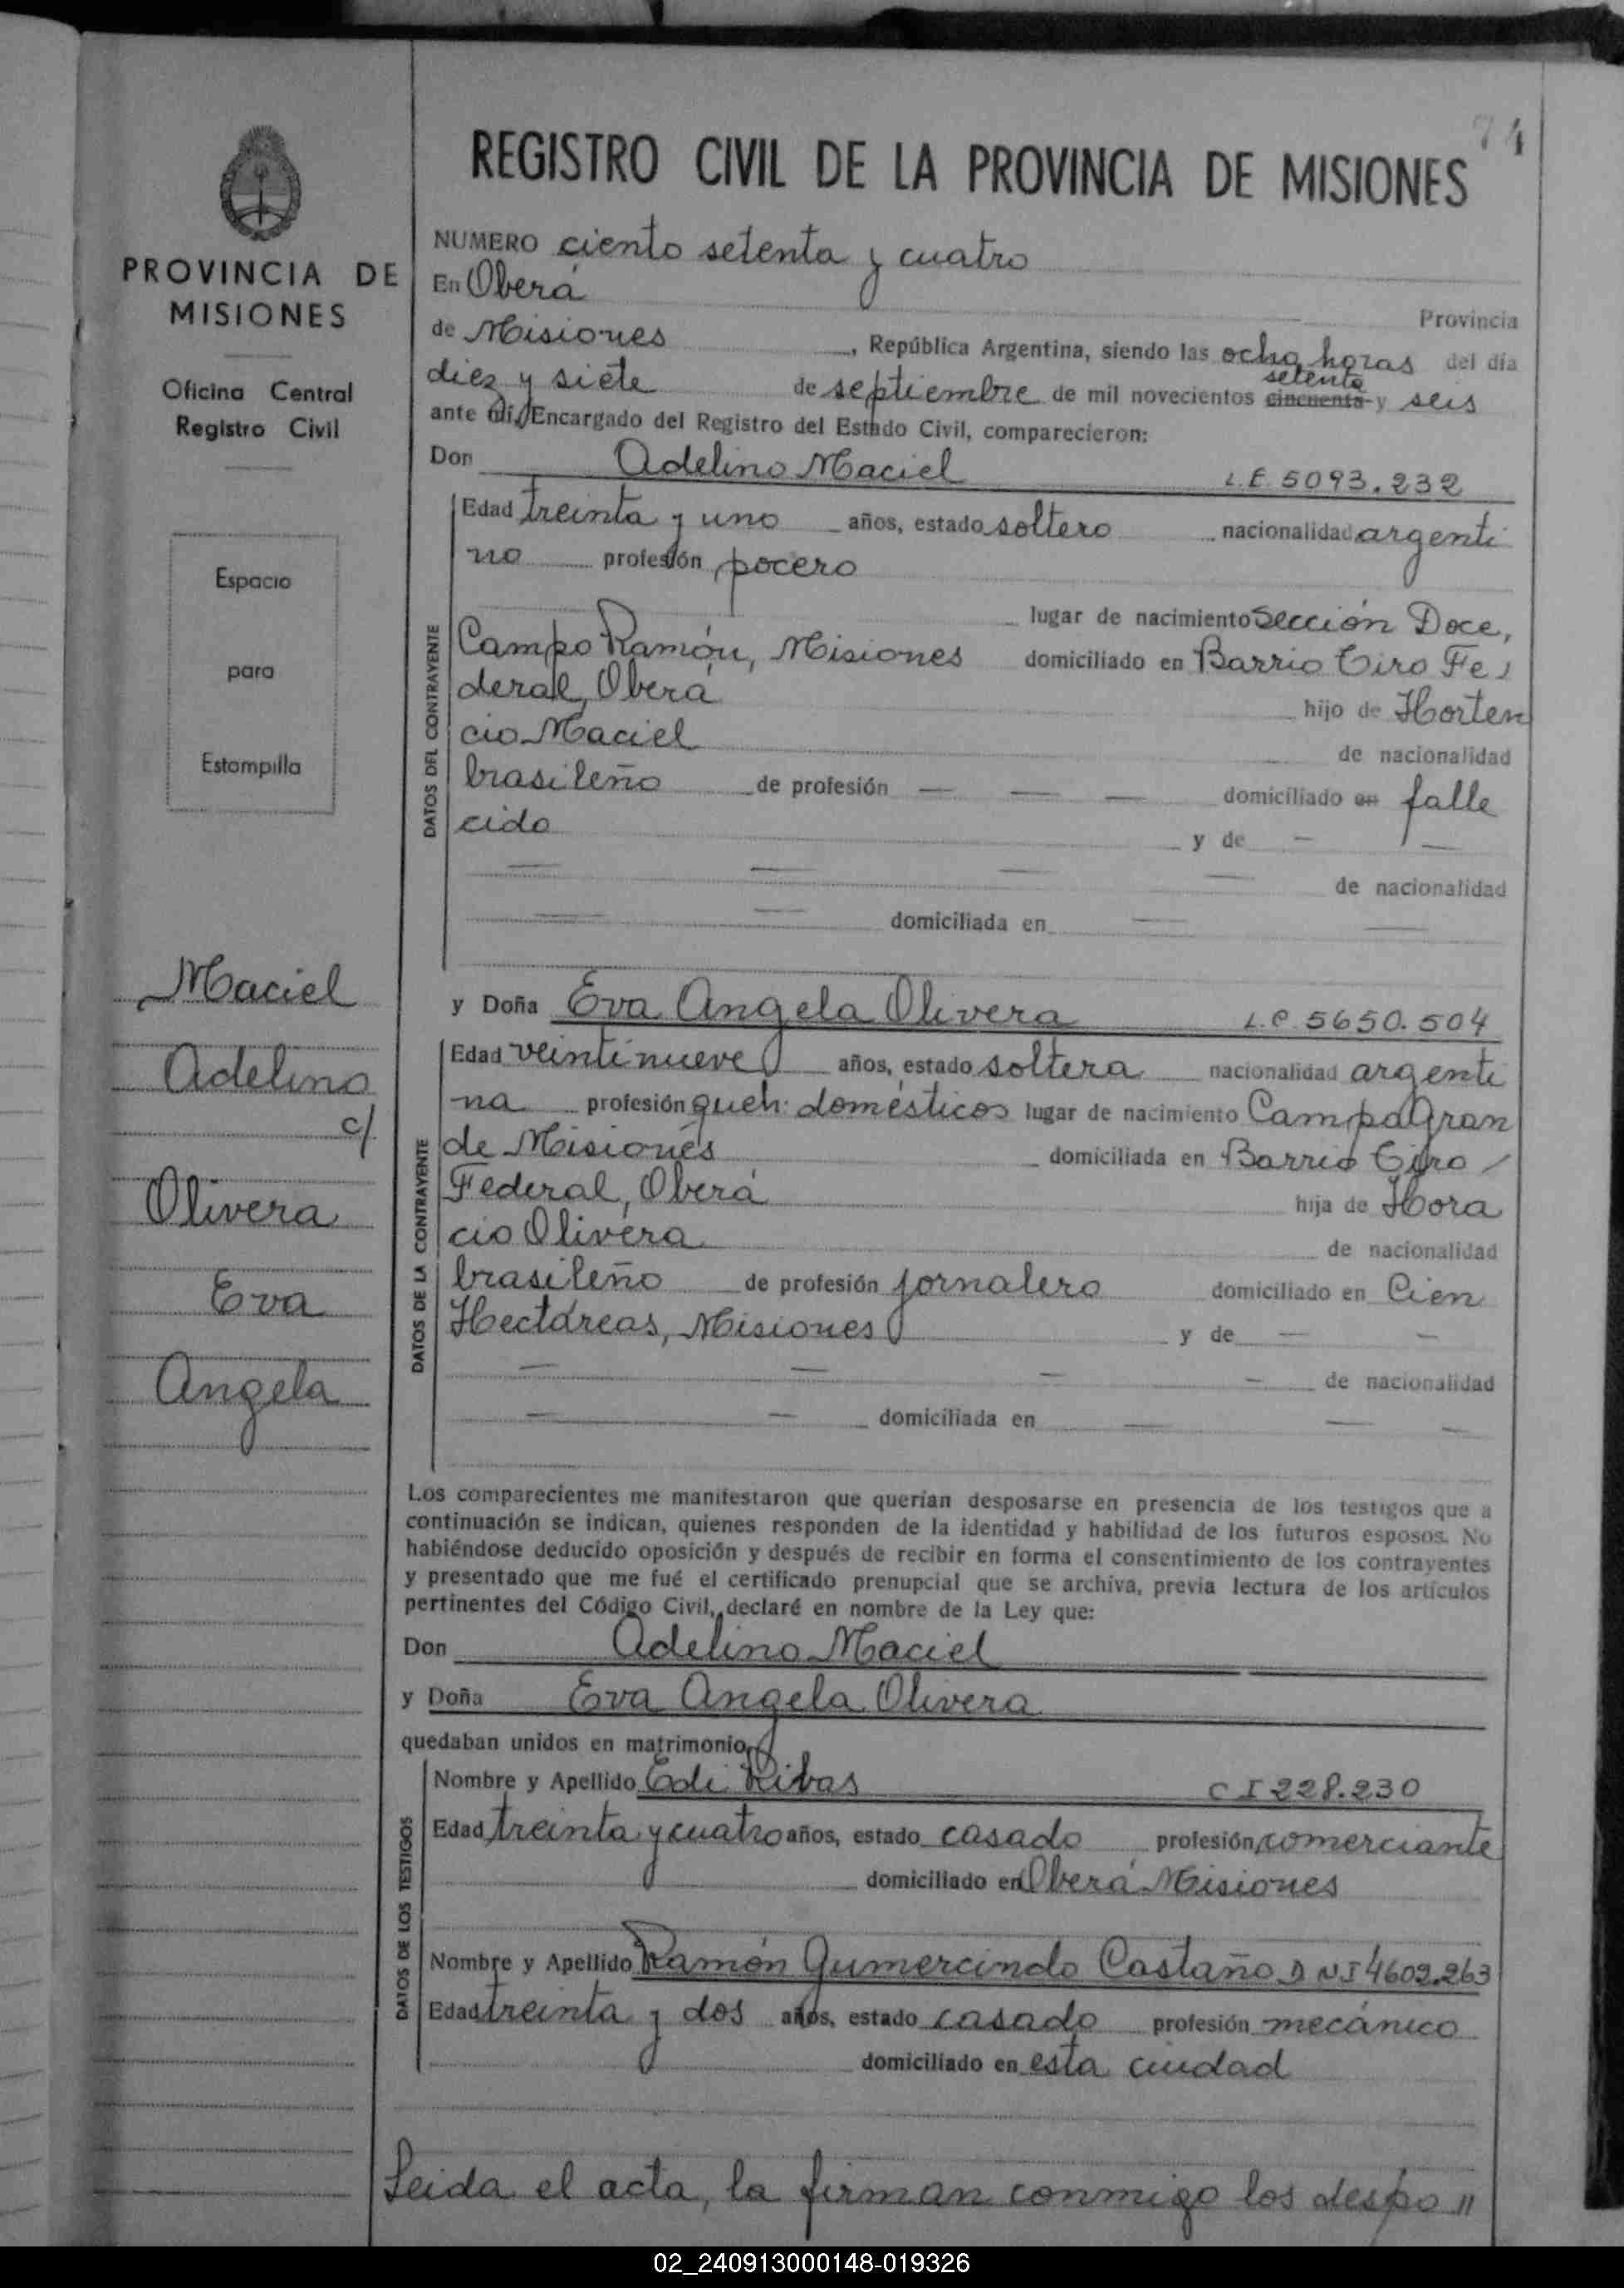 74
REGISTRO CIVIL DE LA PROVINCIA DE MISIONES
PROVINCIA DE
MISIONES
Oficina Central
Registro Civil
Espacio
para
Estampilla
Maciel
Adelino
c/
Olivera
Eva
Angela
NUMERO ciento setenta y cuatro
En Oberá
Provincia
de Misiones, República Argentina, siendo las ocho horas del día
diez y siete de septiembre de mil novecientos cincuenta setenta y seis
ante mí, Encargado del Registro del Estado Civil, comparecieron:
Don Adelino Maciel L.E. 5093.232
DATOS DEL CONTRAYENTE
Edad treinta y uno años, estado soltero nacionalidad argenti
no profesión pocero
lugar de nacimiento Sección Doce,
Campo Ramón, Misiones domiciliado en Barrio Tiro Fe
deral, Oberá
hijo de Horten
cio Maciel
de nacionalidad
brasileño de profesión — — — domiciliado en falle
cido y de — —
— — — — de nacionalidad
— — domiciliada en — —
y Doña Eva Angela Olivera L.C. 5650.504
DATOS DE LA CONTRAYENTE
Edad veintinueve años, estado soltera nacionalidad argenti
na profesión queh. domésticos lugar de nacimiento Campo Gran
de Misiones domiciliada en Barrio Tiro
Federal, Oberá hija de Hora
cio Olivera de nacionalidad
brasileño de profesión jornalero domiciliado en Cien
Hectáreas, Misiones y de — —
— — — — de nacionalidad
— — domiciliada en — — —
Los comparecientes me manifestaron que querían desposarse en presencia de los testigos que a
continuación se indican, quienes responden de la identidad y habilidad de los futuros esposos. No
habiéndose deducido oposición y después de recibir en forma el consentimiento de los contrayentes
y presentado que me fué el certificado prenupcial que se archiva, previa lectura de los artículos
pertinentes del Código Civil, declaré en nombre de la Ley que:
Don Adelino Maciel
y Doña Eva Angela Olivera
quedaban unidos en matrimonio
DATOS DE LOS TESTIGOS
Nombre y Apellido Edi Ribas C I 228.230
Edad treinta y cuatro años, estado casado profesión comerciante
domiciliado en Oberá Misiones
Nombre y Apellido Ramón Gumercindo Castaño D N I 4602.263
Edad treinta y dos años, estado casado profesión mecánico
domiciliado en esta ciudad
Leida el acta, la firman conmigo los despo "
02_240913000148-019326